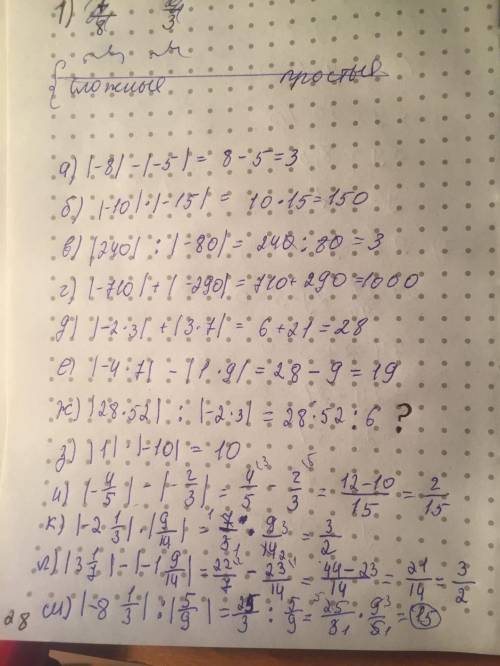 1) 7/8 2/3
сложные простые
а) |-8| - |-5| = 8 - 5 = 3
б) |-10| · |-15| = 10 · 15 = 150
в) |240| : |-80| = 240 : 80 = 3
г) |-710| + |-290| = 710 + 290 = 1000
д) |-2·3| + |3·7| = 6 + 21 = 28
е) |-4·7| - |1·9| = 28 - 9 = 19
ж) |28·52| : |-2·3| = 28·52 : 6 ?
з) |1| · |-10| = 10
и) |-4/5| - |-2/3| = 4/5 - 2/3 = 12-10/15 = 2/15
к) |-2 1/3| · |9/14| = 7/3 · 9/14 = 3/2
л) |3 1/7| - |-1 9/14| = 22/7 - 23/14 = 44-23/14 = 21/14 = 3/2
м) |-8 1/3| : |5/9| = 25/3 : 5/9 = 25/3 · 9/5 = 15
28